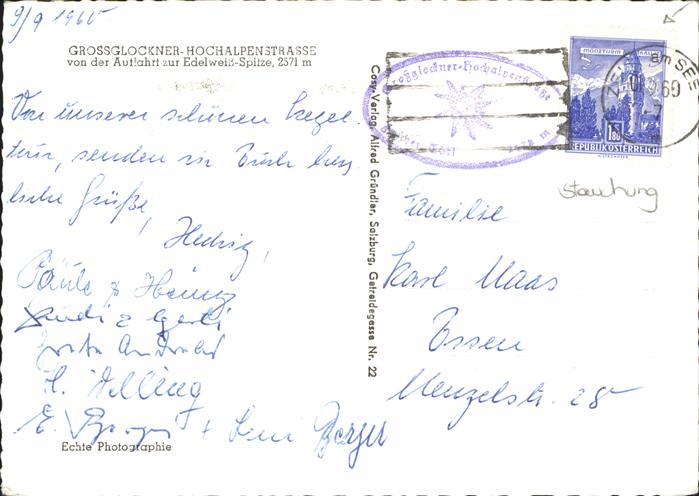 9/9 1960
GROSSGLOCKNER-HOCHALPENSTRASSE
von der Auffahrt zur Edelweiß-Spitze, 2571 m
Von unserer schönen Kegel-
tour, senden wir Euch herz-
liche Grüße,
Hedwig,
Paula & Heinz
Rudi & Gerti
H. Delling
E. Berger + Leni Berger
Echte Photographie
Cosy-Verlag Alfred Gründler, Salzburg, Getreidegasse Nr. 22
Großglockner-Hochalpenstraße
MÜNZTURM HALL
1.80
REPUBLIK ÖSTERREICH
ZELL am SEE
Stauchung
Familie
Karl Maas
Essen
Menzelstr. 28